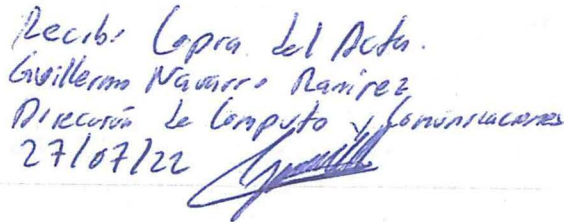 Recibi Copia del Acta.
Guillermo Navarro Ramirez
Dirección de Computo y Comunicaciones
27/07/22